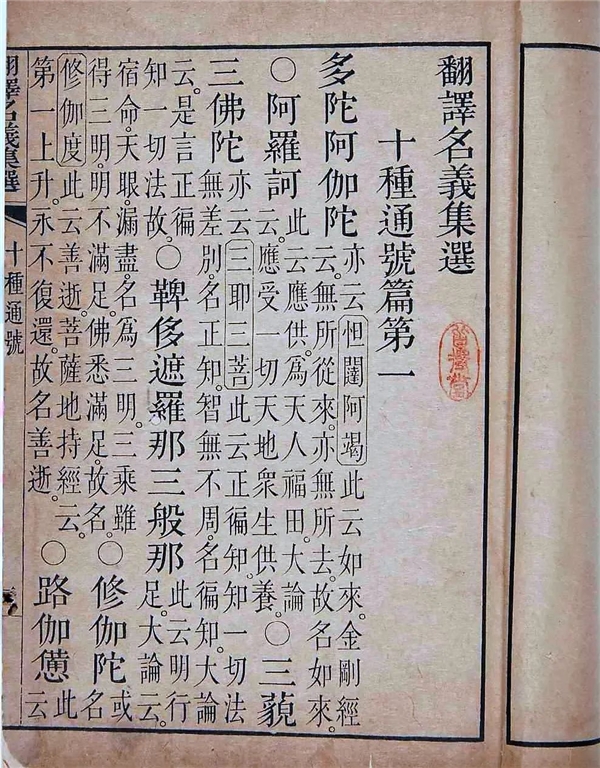 翻譯名義集選
十種通號篇第一
多陀阿伽陀亦云怛闥阿竭此云如來。金剛經
云。無所從來。亦無所去。故名如來。
○阿羅訶此云應供。爲天人福田。大論
云。應受一切天地衆生供養。○三藐
三佛陀亦云三耶三菩此云正徧知。知一切法
無差別。名正知。智無不周。名徧知。大論
云。是言正徧
知一切法故。○鞞侈遮羅那三般那此云明行
足。大論云。
宿命。天眼。漏盡。名爲三明。三乘雖
得三明。明不滿足。佛悉滿足。故名。○修伽陀或
名
修伽度此云善逝。菩薩地持經云。
第一上升。永不復還。故名善逝。○路伽憊此
云
翻譯名義集選
十種通號